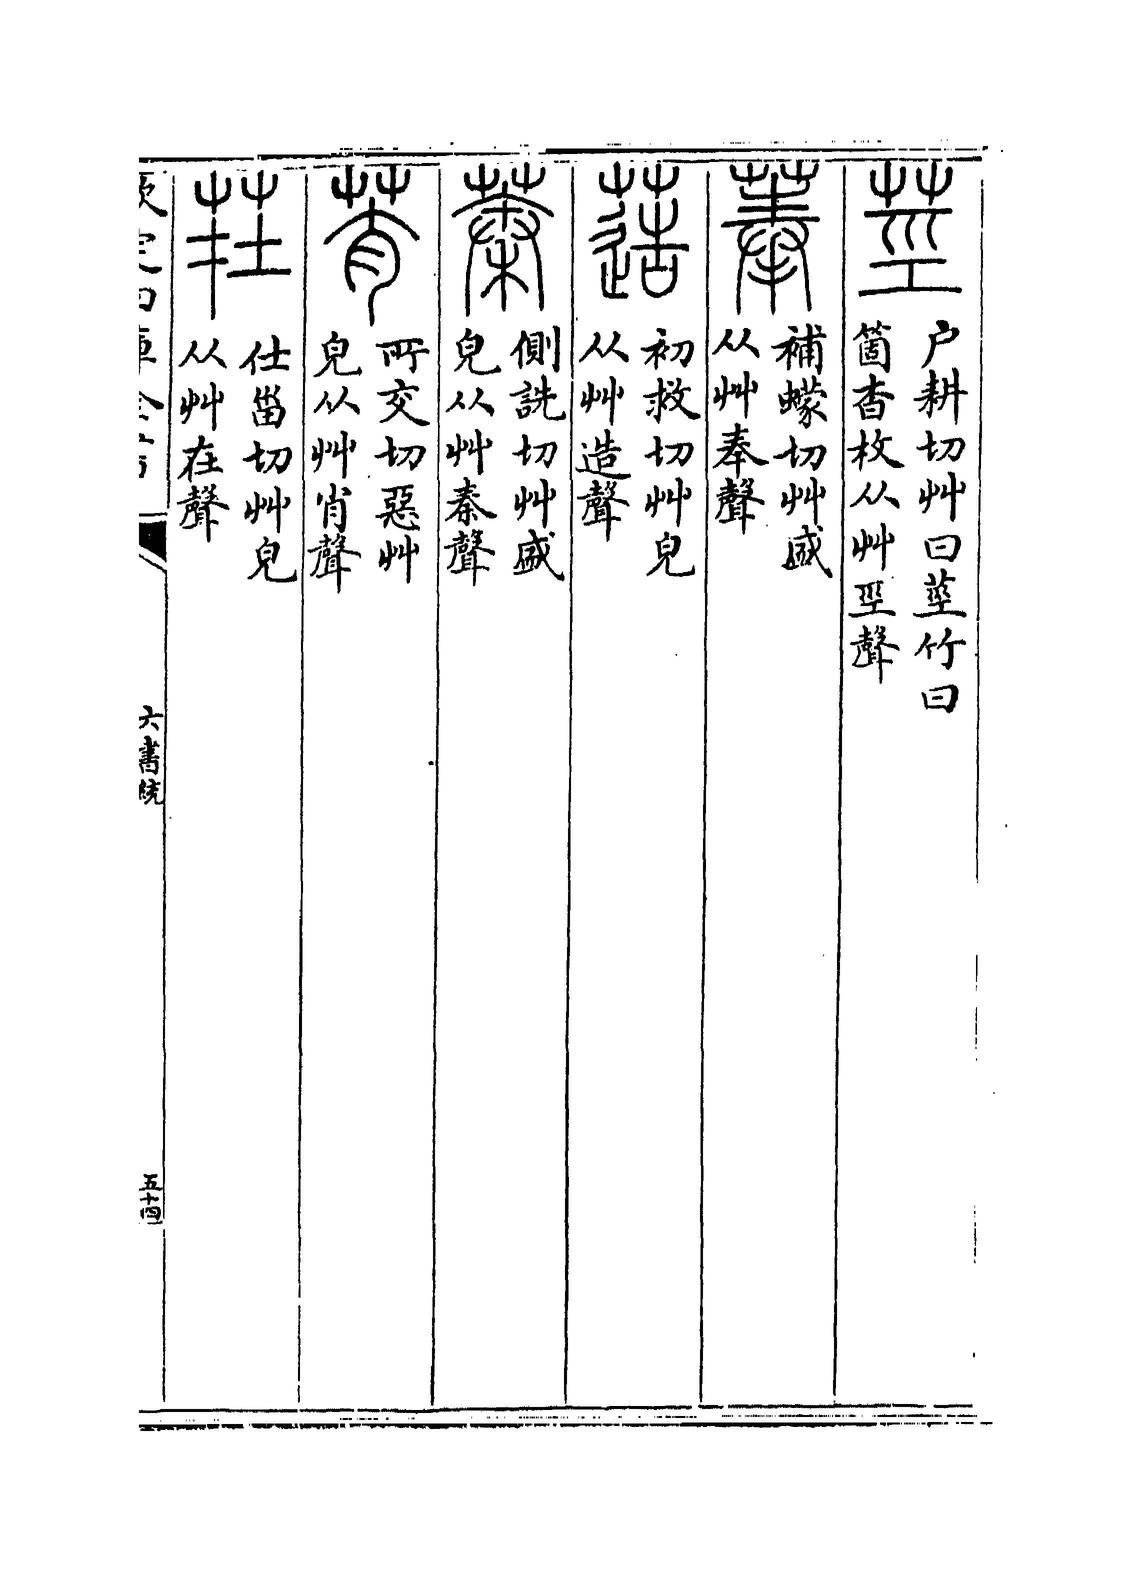 莖
户耕切艸曰莖竹曰
箇杳枚从艸巠聲
菶
補蠓切艸盛
从艸奉聲
初救切艸皃
从艸造聲
蓁
側詵切艸盛
皃从艸秦聲
莦
所交切惡艸
皃从艸肖聲
茬
仕甾切艸皃
从艸在聲
欽定四庫全書
六書統
五十四